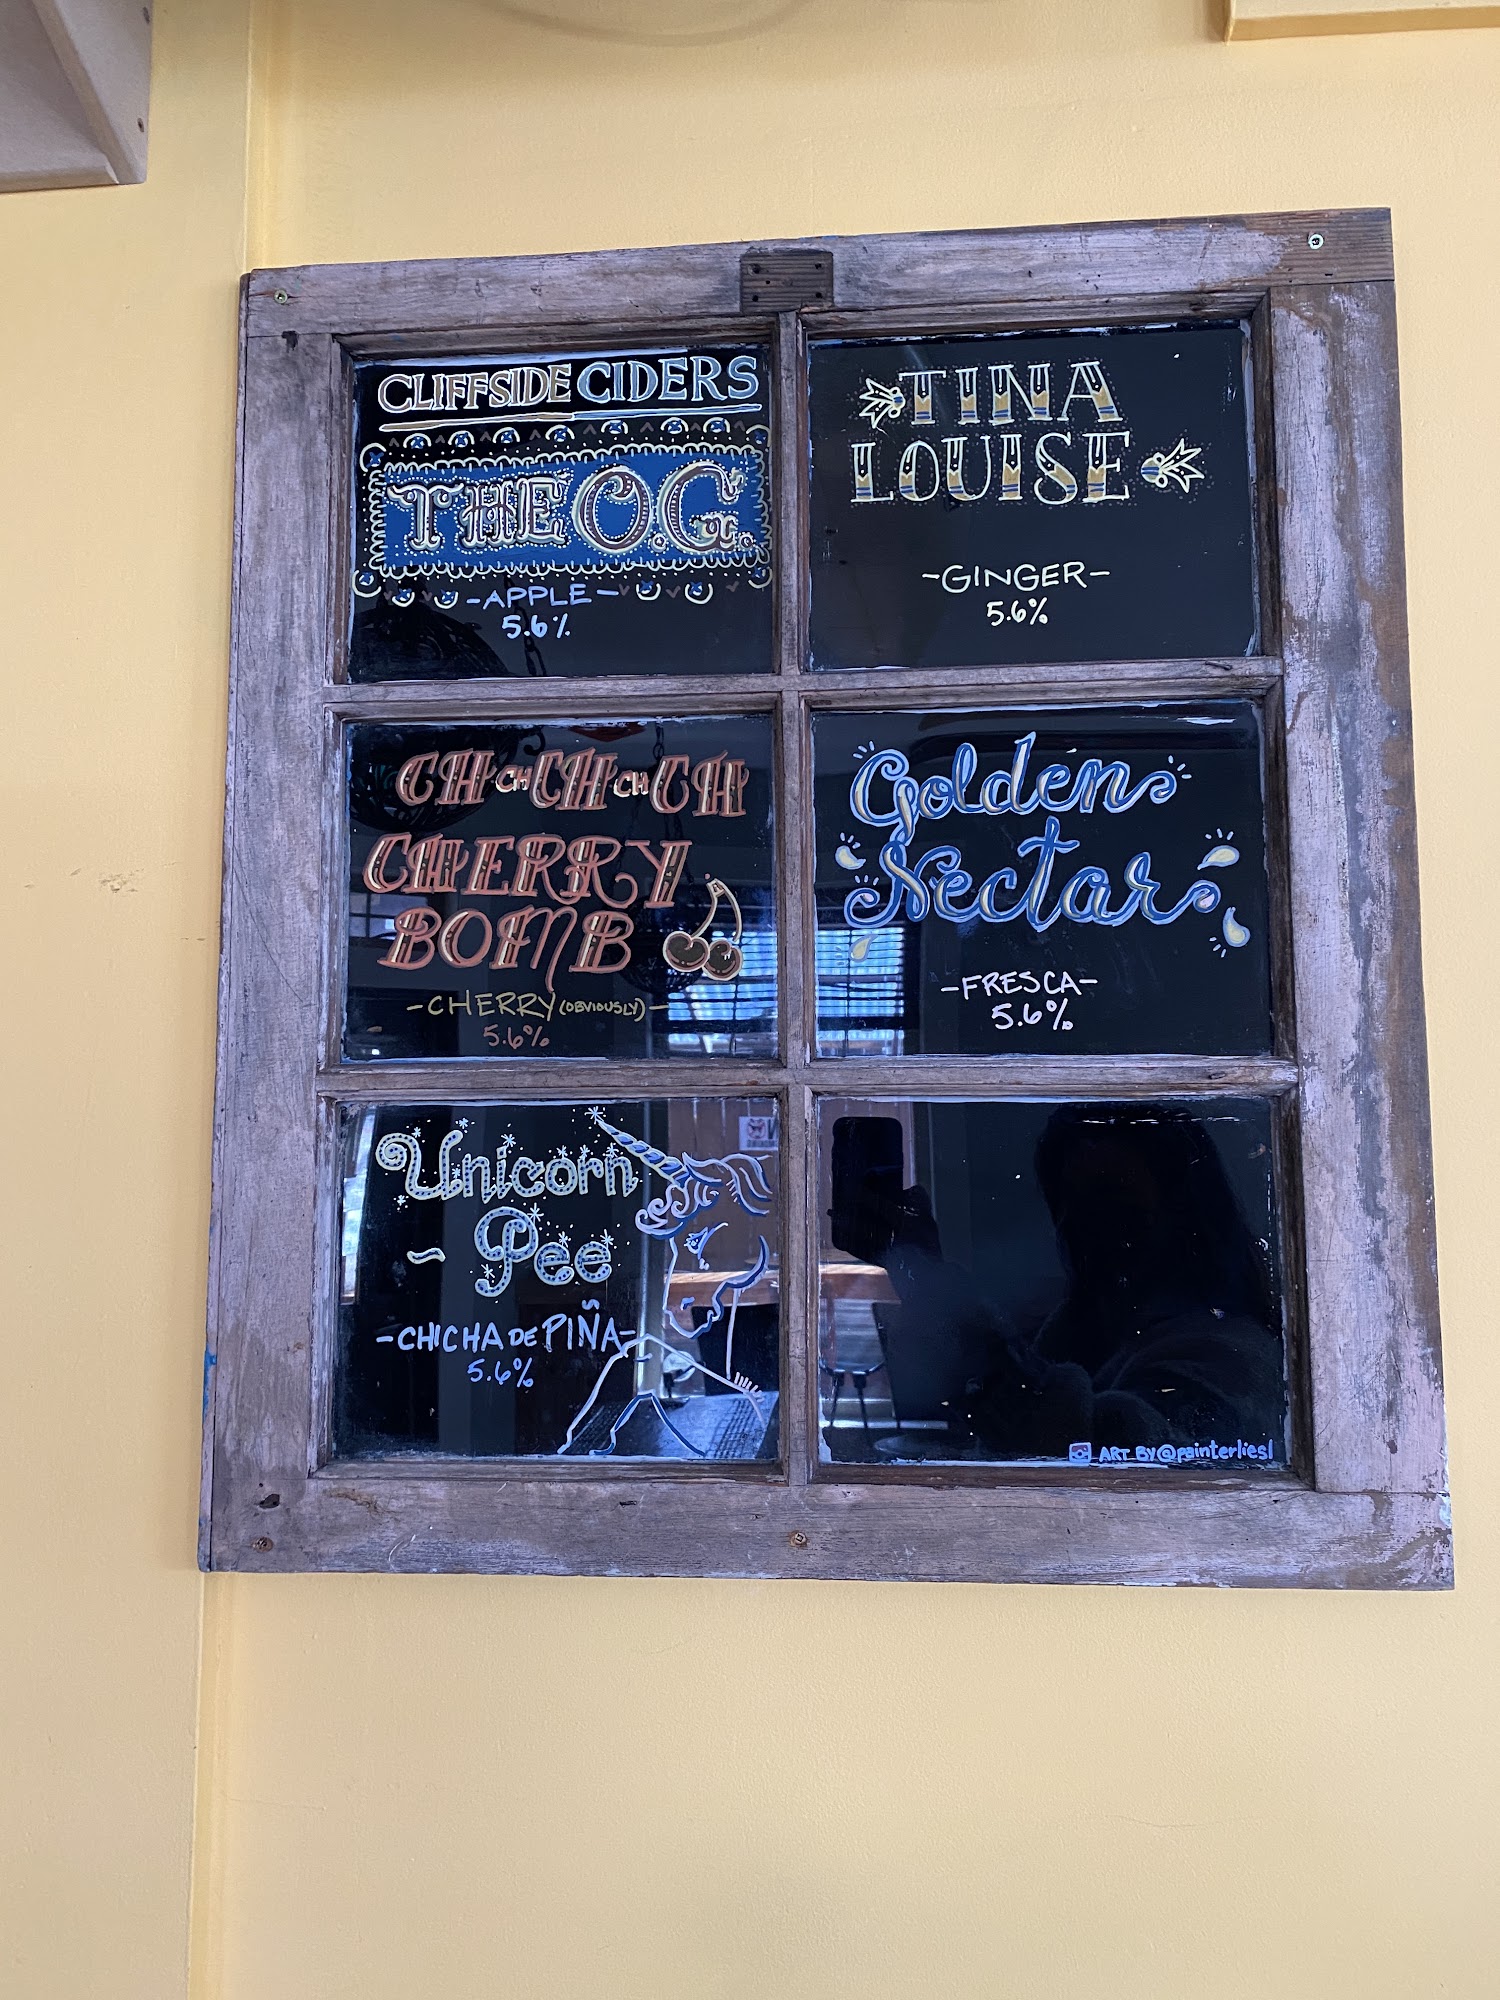 CLIFFSIDE CIDERS
THE O.G.
-APPLE-
5.6%
TINA
LOUISE
-GINGER-
5.6%
CH CH CH CH CH
CHERRY
BOMB
-CHERRY (OBVIOUSLY)-
5.6%
Golden
Nectar
-FRESCA-
5.6%
Unicorn
- Pee
-CHICHA DE PIÑA-
5.6%
ART BY @painterliesl